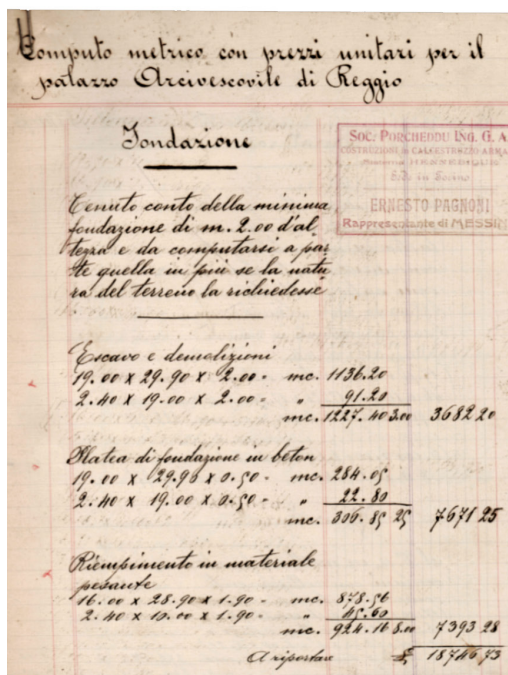 Computo metrico con prezzi unitari per il
palazzo Arcivescovile di Reggio
Fondazione
SOC: PORCHEDDU ING. G. A
COSTRUZIONI CALCESTRUZZO ARMA
Ede in Torino
ERNESTO PAGNONI
Rappresentante di MESSIN
Tenuto conto della minima
fondazione di m. 2.00 d'al
tezza e da computarsi a par
te quella in più se la natu
ra del terreno la richiedesse
Escavo e demolizioni
19.00 x 29.90 x 2.00 - mc. 1136.20
2.40 x 19.00 x 2.00 - " 91.20
mc. 1227.40 3.00 3682 20
Platea di fondazione in beton
19.00 x 29.90 x 0.50 - mc. 284.05
2.40 x 19.00 x 0.50 - " 22.80
mc. 306.85 25 7671 25
Riempimento in materiale
pesante
16.00 x 28.90 x 1.90 - mc. 878.56
2.40 x 10.00 x 1.90 - " 45.60
mc. 924.16 8.00 7393 28
A riportare £ 18746,73